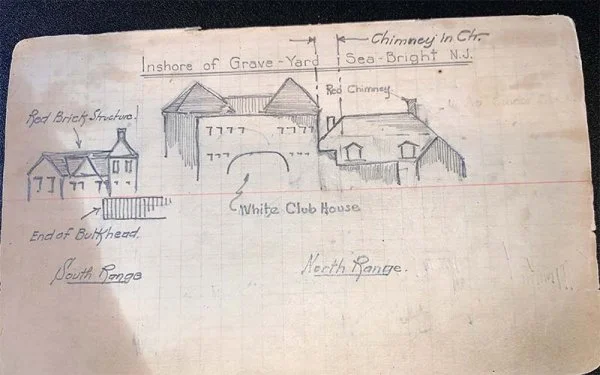 Chimney In Ctr.
Inshore of Grave-Yard Sea-Bright N.J.
Red Chimney
Red Brick Structure.
White Club House
End of Bulkhead.
South Range
North Range.